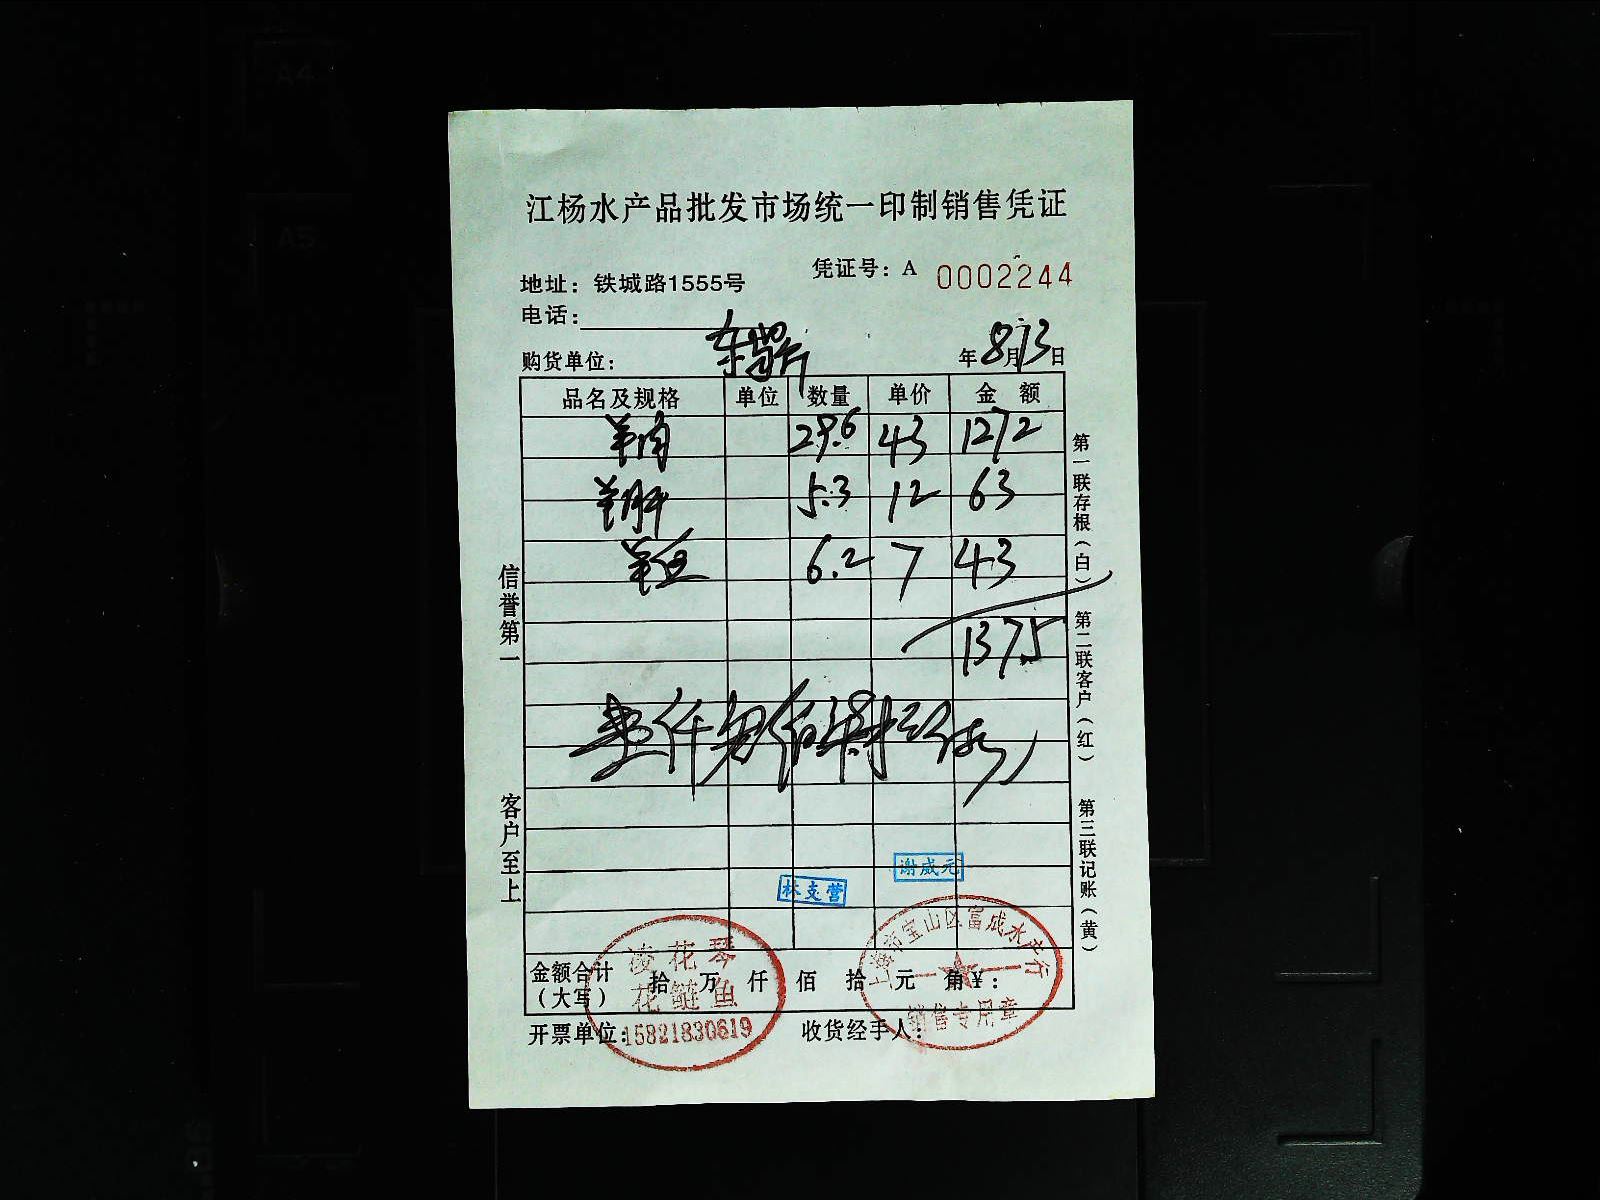 A4
A5
江杨水产品批发市场统一印制销售凭证
凭证号：A 0002244
地址：铁城路1555号
电话：
购货单位：
年8月13日
品名及规格 单位 数量 单价 金额
羊肉 29.6 43 1272
羊肝 5.3 12 63
羊 6.2 7 43
1375
壹仟叁佰柒拾
信誉第一
客户至上
第一联存根（白）
第二联客户（红）
第三联记账（黄）
谢成元
林支营
金额合计（大写） 拾 万 仟 佰 拾 元 角 ¥：
开票单位：
收货经手人：
凌花琴
花鲢鱼
15821830619
上海市宝山区富成水产行
销售专用章